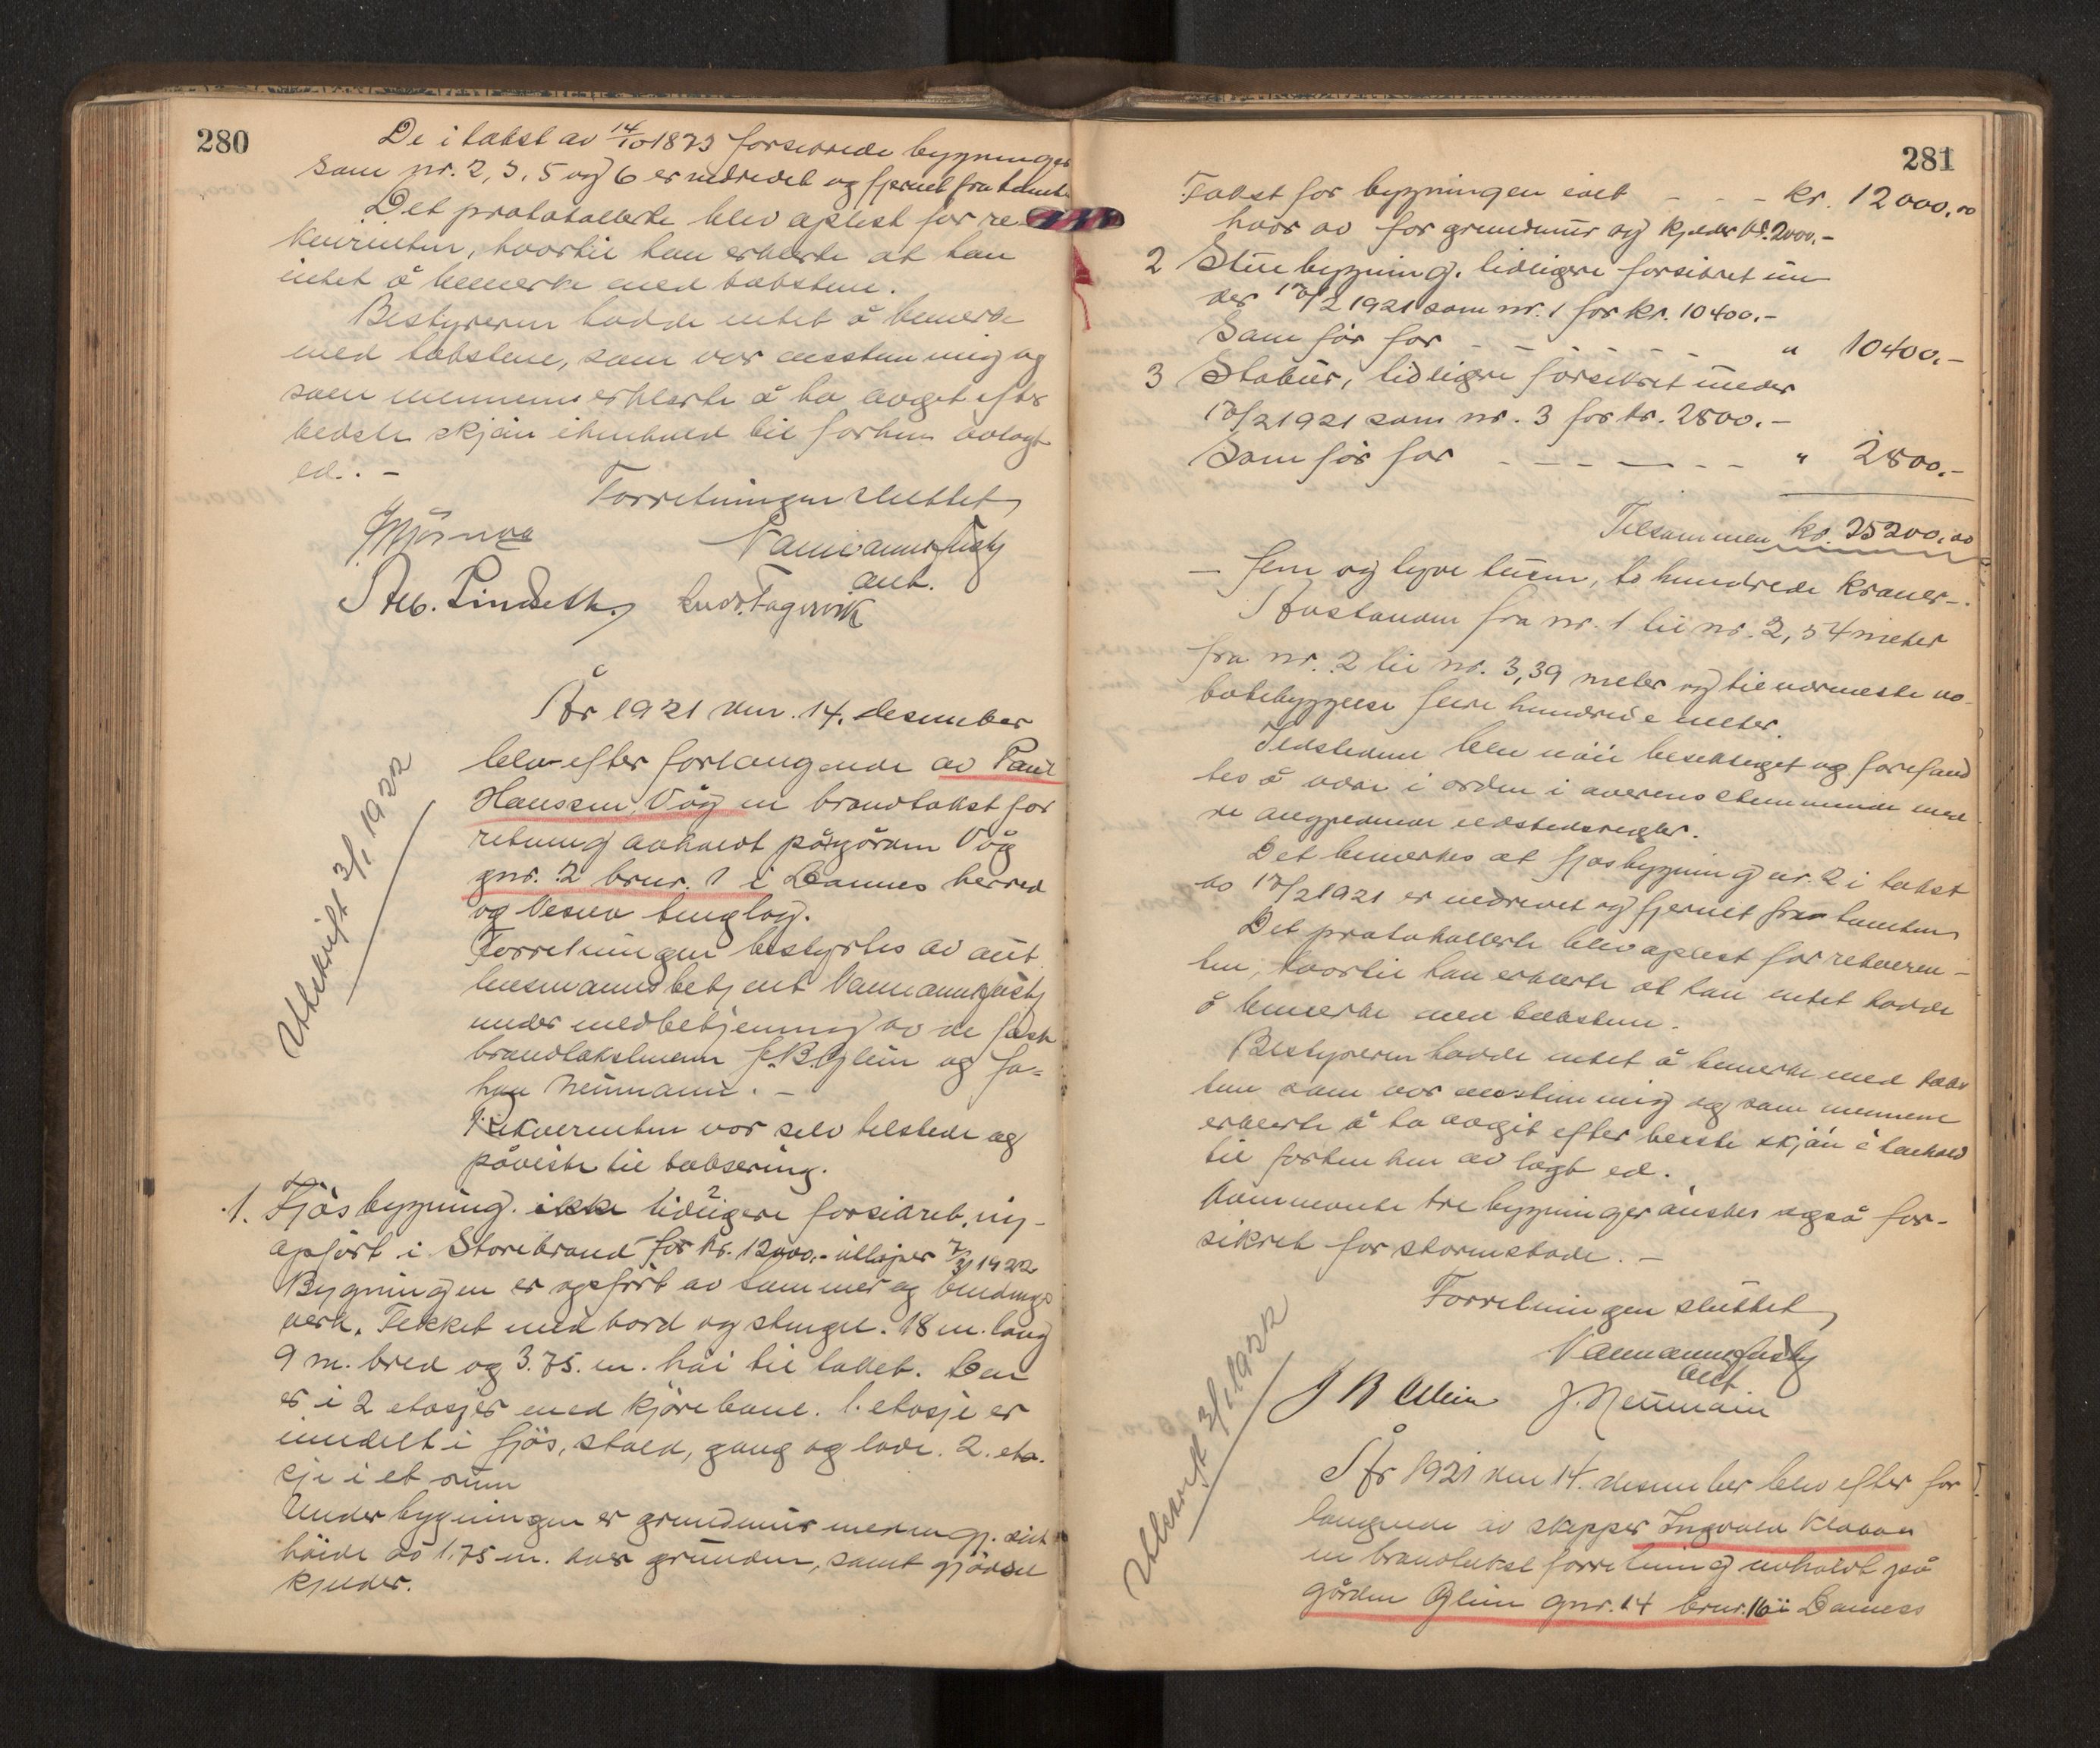 280
De i takst av 14/10 1873 forsikrede bygninger
som nr. 2, 3, 5 og 6 er nedrevet og fjernet fra tomten
Det protokollerte blev oplest for re-
kvirenten, hvortil han erklærte at han
intet å bemerke med taksten.
Bestyreren hadde intet å bemerke
med takstene, som var enstemmig og
som mennene erklærte å ha avgit efter
bedste skjøn i henhold til forhen avlagt
ed. -
Forretningen sluttet
Vanvannug
ant.
Seb. Lindseth. Ludv. Fagervik
År 1921 den 14. desember
blev efter forlangende av Paul
Hanssen, Våg en brandtakst for
retning avholdt på gården Våg
gnr. 2 brnr. 1 i Dønnes herred
og Nesna tinglag.
Forretningen bestyrtes av aut.
lensmannsbetjent
under medbetjening av de faste
brandtakstmenn J. B. Glein og Jo=
han Neumann. -
Rekvirenten var selv tilstede og
påviste til taksering.
Utskrift 3/1 1922
1. Fjøsbygning. ikke tidligere forsikret, ny-
opført i Storebrand for kr. 12000.- utløper 7/3 1922
Bygningen er opført av tømmer og bindings
verk. Tekket med bord og stenger. 18 m. lang
9 m. bred og 3.75. m. høi til taket. Den
er i 2 etasjer med kjørebane. 1. etasje er
inndelt i fjøs, stald, gang og lade. 2. eta-
sje i et rum
Under bygningen er grundmur med en gj. snit
høide av 1.75 m. over grunden, samt gjødsel
kjelder.
281
Takst for bygningen ialt - - - kr. 12000,00
hvor av for grundmur og kjelder kr. 2000.-
2 Stuebygning. tidligere forsikret un
der 17/2 1921 som nr. 1 for kr. 10400.-
Som før for - - - - - " 10400.-
3 Stabur, tidligere forsikret under
17/2 1921 som nr. 3 for kr. 2800.-
Som før for - - - - - - " 2800.-
Tilsammen kr. 25200,00
- fem og tyve tusen, to hundrede kroner -.
Avstanden fra nr. 1 til nr. 2, 54 meter
fra nr. 2 til nr. 3, 39 meter og til nærmeste na-
bobebyggelse flere hundrede meter.
Ildstedene blev nøie besiktiget og forefand
tes å være i orden i overensstemmende med
de angjeldende ildstedsregler.
Det bemerkes at fjøsbygning nr. 2 i takst
av 17/2 1921 er nedrevet og fjernet fra tomten
Det protokollerte blev oplest for rekviren-
ten, hvortil han erklærte at han intet hadde
å bemerke med taksten.
Bestyreren hadde intet å bemerke med taks
ten som var enstemmig og som mennene
erklærte å ha avgit efter beste skjøn i henhold
til forhen hen av lagt ed.
Nævnte tre bygninger ønskes også for-
sikret for stormskade. -
Forretningen sluttet
aut
J B Glein J. Neumann
Utskrift 3/1 1922
År 1921 den 14. desember blev efter for
langende av skipper Ingvald Klavan
en brandtakst forretning avholdt på
gården Glein gnr. 14 brnr. 16 i Dønness